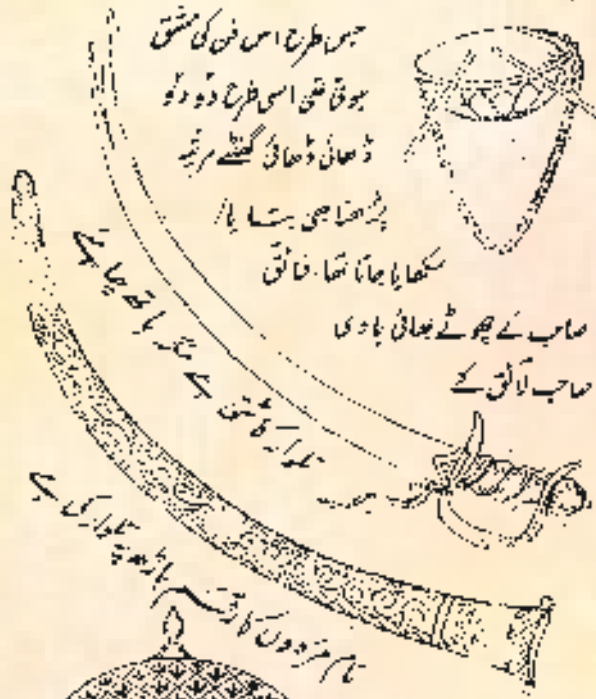 جس طرح اس فن کی مشق
ہوتی تھی اسی طرح دو دو
ڈھائی ڈھائی گھنٹے مرثیہ
پڑھنا بھی بتایا/
سکھایا جاتا تھا۔ فائق
صاحب کے چھوٹے بھائی ہادی
صاحب لائق کے
تلوار کاٹتی ہے مگر ہاتھ چاہیے
نامردوں کا رقص باڑھ پہ تلوار کی ہے